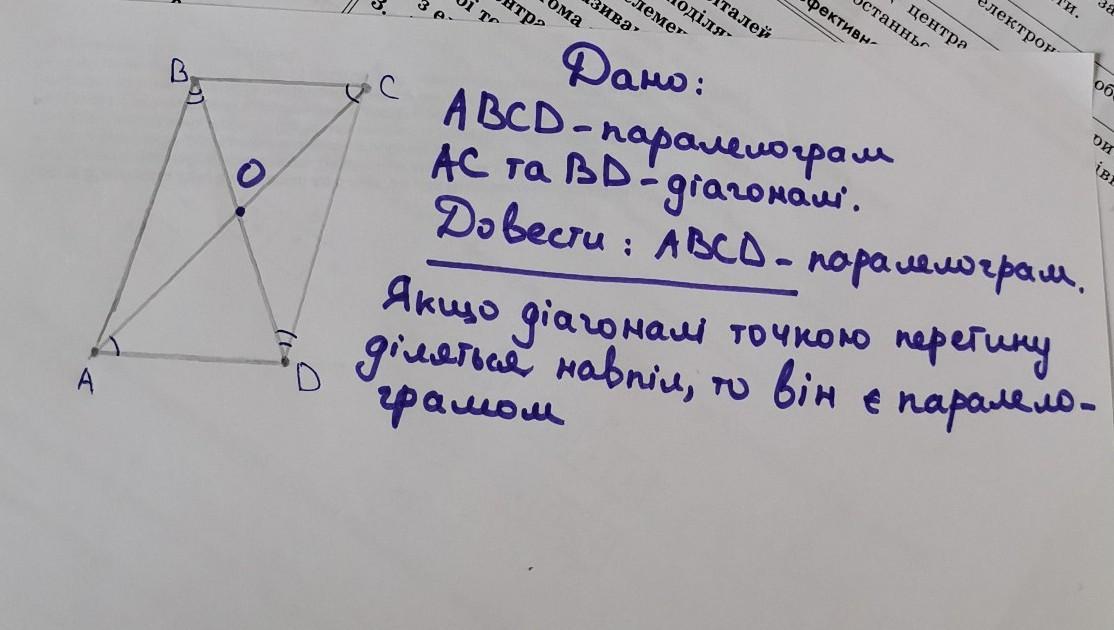 3.
центра
електрон
B
C
O
A
D
Дано:
ABCD - паралелограм
AC та BD - діагоналі.
Довести: ABCD - паралелограм.
Якщо діагоналі точкою перетину
діляться навпіл, то він є паралело-
грамом